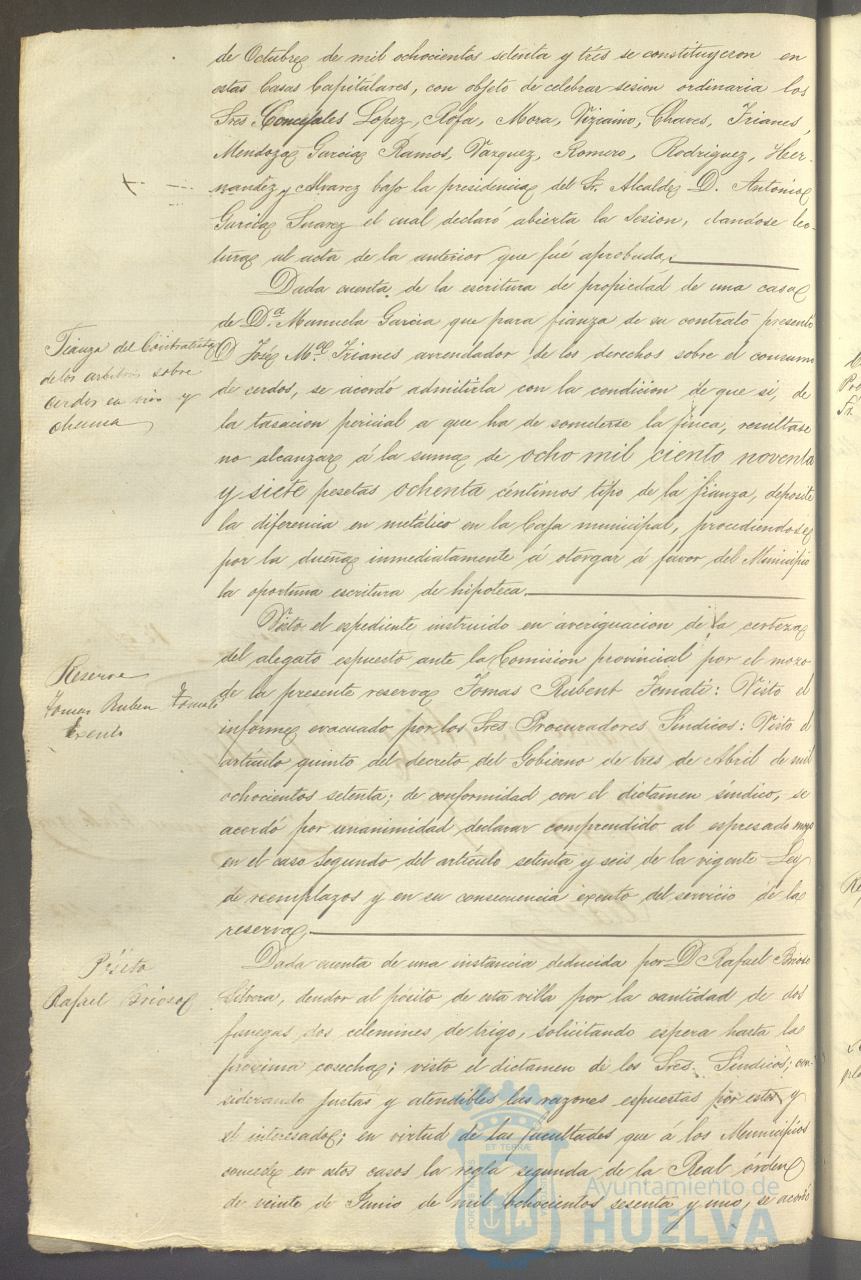 de Octubre de mil ochocientos setenta y tres se constituyeron en
estas Casas Capitulares, con objeto de celebrar sesion ordinaria los
Sres Concejales Lopez, Rofa, Mora, Vizcaino, Chaves, Trianes,
Mendoza Garcia Ramos, Vazquez, Romero, Rodriguez, Her-
nandez y Alvarez bajo la presidencia del Sr. Alcalde D. Antonio
Garcia Suarez el cual declaró abierta la Sesion, dandose lec-
tura al acta de la anterior que fué aprobada.
Dada cuenta de la escritura de propiedad de una casa
de D.ª Manuela Garcia que para fianza de su contrato presentó
Fianza del Contratista
de los arbitrios sobre
cerdos en vivo y
D José M.ª Trianes arrendador de los derechos sobre el consumo
de cerdos, se acordó admitirla con la condicion de que si, de
la tasacion pericial a que ha de someterse la finca, resultase
no alcanzar á la suma de ocho mil ciento noventa
y siete pesetas ochenta céntimos tipo de la fianza, deposite
la diferencia en metálico en la Caja municipal, procediendose
por la dueña inmediatamente á otorgar á favor del Municipio
la oportuna escritura de hipoteca.
Visto el espediente instruido en averiguacion de la certeza
del alegato espuesto ante la Comision provincial por el mozo
Reserva
Tomas Ruben Tomati
Exento
de la presente reserva Tomas Rubent Tomati: Visto el
informe evacuado por los Sres Procuradores Sindicos: Visto el
artículo quinto del decreto del Gobierno de tres de Abril de mil
ochocientos setenta; de conformidad con el dictamen síndico, se
acordó por unanimidad declarar comprendido al espresado mozo
en el caso Segundo del artículo setenta y seis de la vigente Ley
de reemplazos y en su consecuencia exento del servicio de la
reserva.
Pósito
Rafael Brioso
Dada cuenta de una instancia deducida por D Rafael Brioso
deudor al pósito de esta villa por la cantidad de dos
fanegas dos celemines de trigo, solicitando espera hasta la
proxima cosecha; visto el dictamen de los Sres. Síndicos; con-
siderando justas y atendibles las razones espuestas por estos y
el interesado; en virtud de las facultades que á los Municipios
concede en estos casos la regla segunda de la Real órden
de veinte de Junio de mil ochocientos sesenta y uno, se acordó
ET TERRÆ
Ayuntamiento de
HUELVA